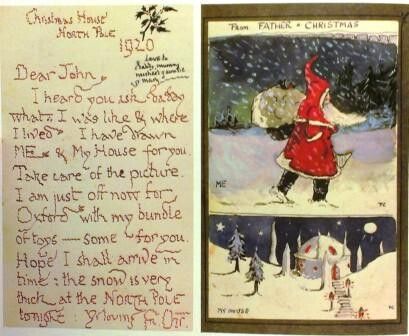 Christmas House
NORTH POLE
1920
Love to
daddy, mummy
michael & auntie
mary
Dear John
I heard you ask daddy
what I was like & where
I lived. I have drawn
ME & My House for you.
Take care of the picture.
I am just off now for
Oxford with my bundle
of toys — some for you.
Hope I shall arrive in
time : the snow is very
thick at the NORTH POLE
tonight : Yr loving Fr. Chr.
From FATHER · CHRISTMAS
ME
MY HOUSE